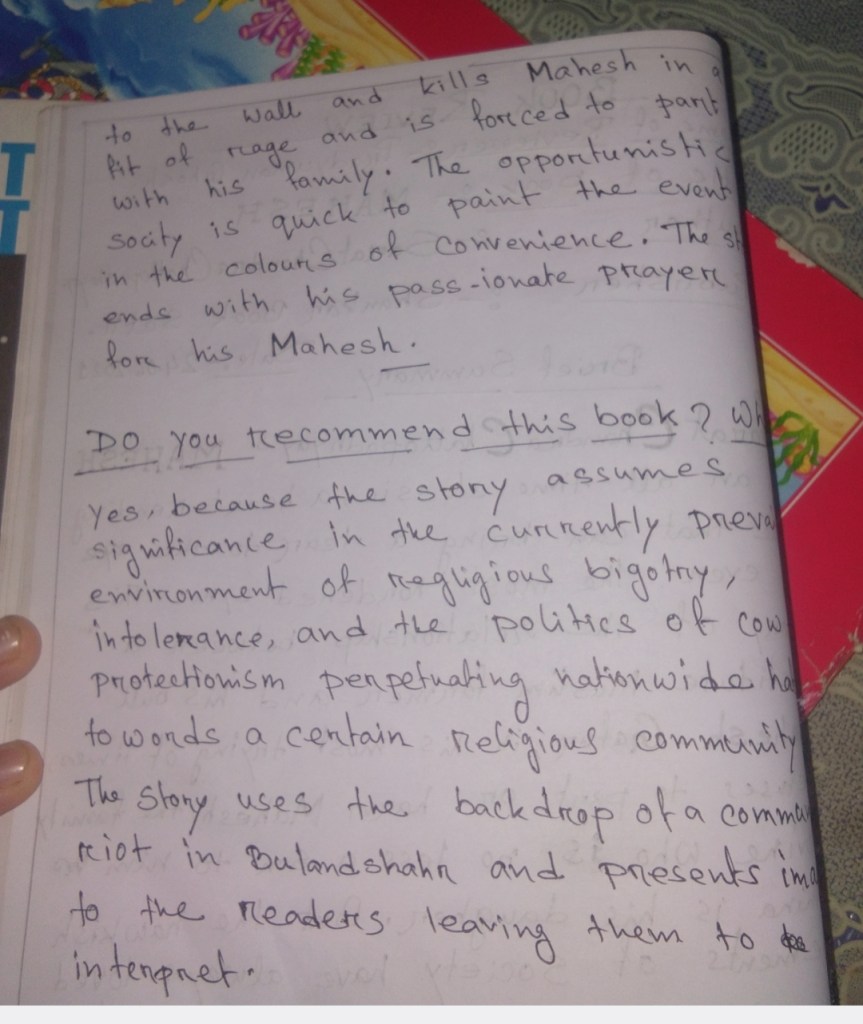 to the wall and kills Mahesh in a
fit of rage and is forced to part
with his family. The opportunistic
socity is quick to paint the event
in the colours of convenience. The st
ends with his pass-ionate prayer
for his Mahesh.
DO you recommend this book? Wh
Yes, because the story assumes
significance in the currently preva
environment of regligious bigotry,
intolerance, and the politics of cow
protectionism perpetuating nationwide ha
towords a certain religious community
The story uses the backdrop of a commu
riot in Bulandshahr and presents ima
to the readers leaving them to
interpret.
T
T